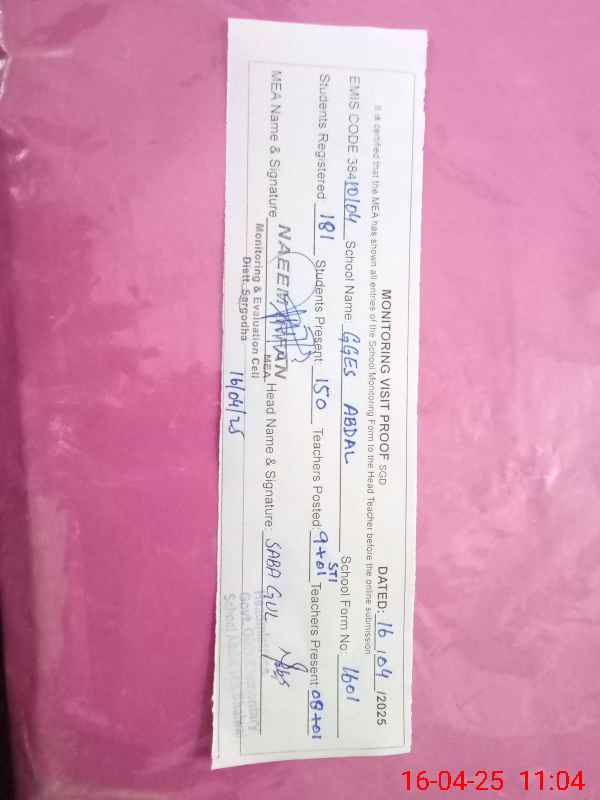 MONITORING VISIT PROOF SGD DATED: 16/04/2025
It is certified that the MEA has shown all entries of the School Monitoring Form to the Head Teacher before the online submission
EMIS CODE 38410104 School Name GGES ABDAL School Form No 1601
Students Registered 181 Students Present 150 Teachers Posted: 9+01 STI Teachers Present 08+01
MEA Name & Signature NAEEM Head Name & Signature: SABA GUL
MEA
Monitoring & Evaluation Cell
Distt. Sargodha
16/04/25
16-04-25 11:04